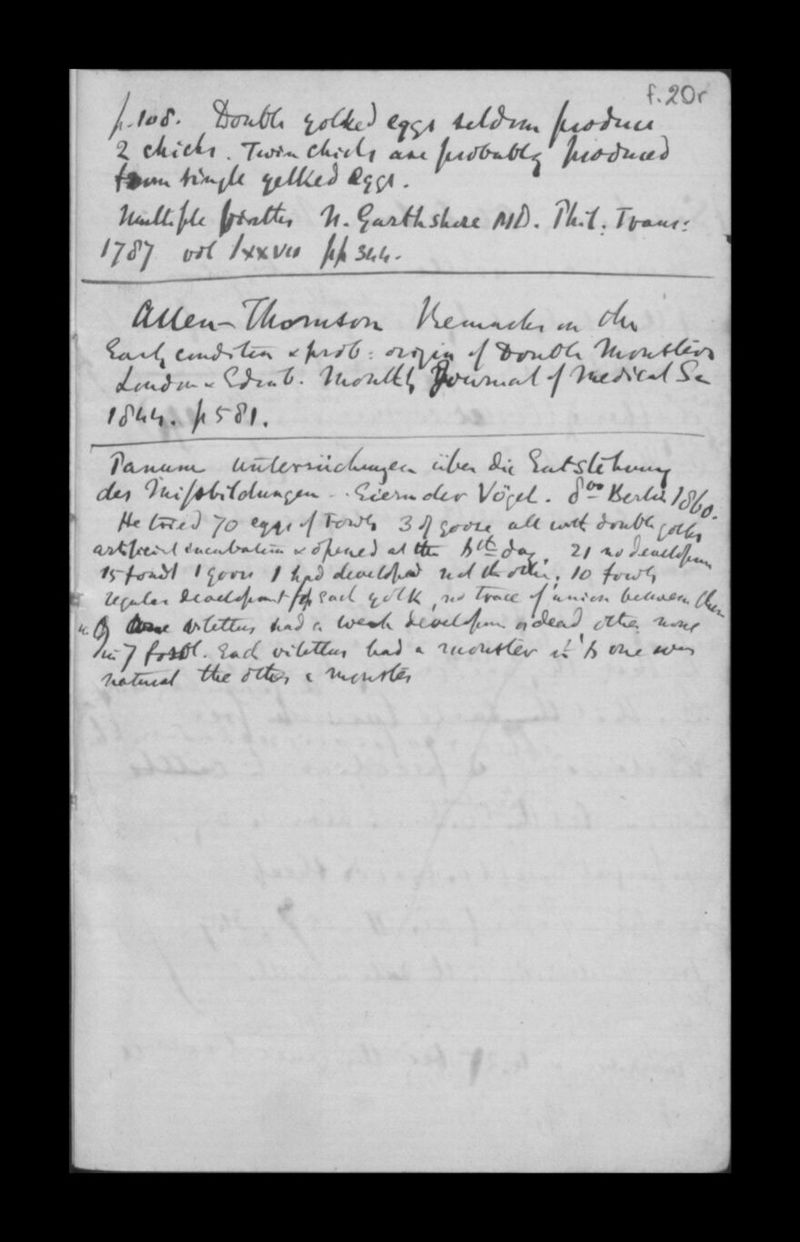 f.20r
p. 108. Double yolked eggs seldom produce
2 chicks. Twin chicks are probably produced
from single yelked eggs.
Multiple births N. Garthshore MD. Phil: Trans:
1787 vol lxxvii pp 344.
Allen-Thomson Remarks on the
Early condition & prob: origin of Double Monsters
London & Edinb. Monthly Journal of Medical Sc
1844. p 581.
Panum Untersüchungen über die Entstehung
der Missbildungen .. Eiern der Vögel. 8vo Berlin 1860.
He tried 70 eggs of Fowls 3 of goose all with double yolks
artificial incubation & opened at the day. 21 no developm
15 fowl 1 goose 1 had developed not the other. 10 fowls
regular development for each yolk, no trace of union between them
vitellus had a weak developm & dead other none
in 7 Each vitellus had a monster in one was
natural the other a monster